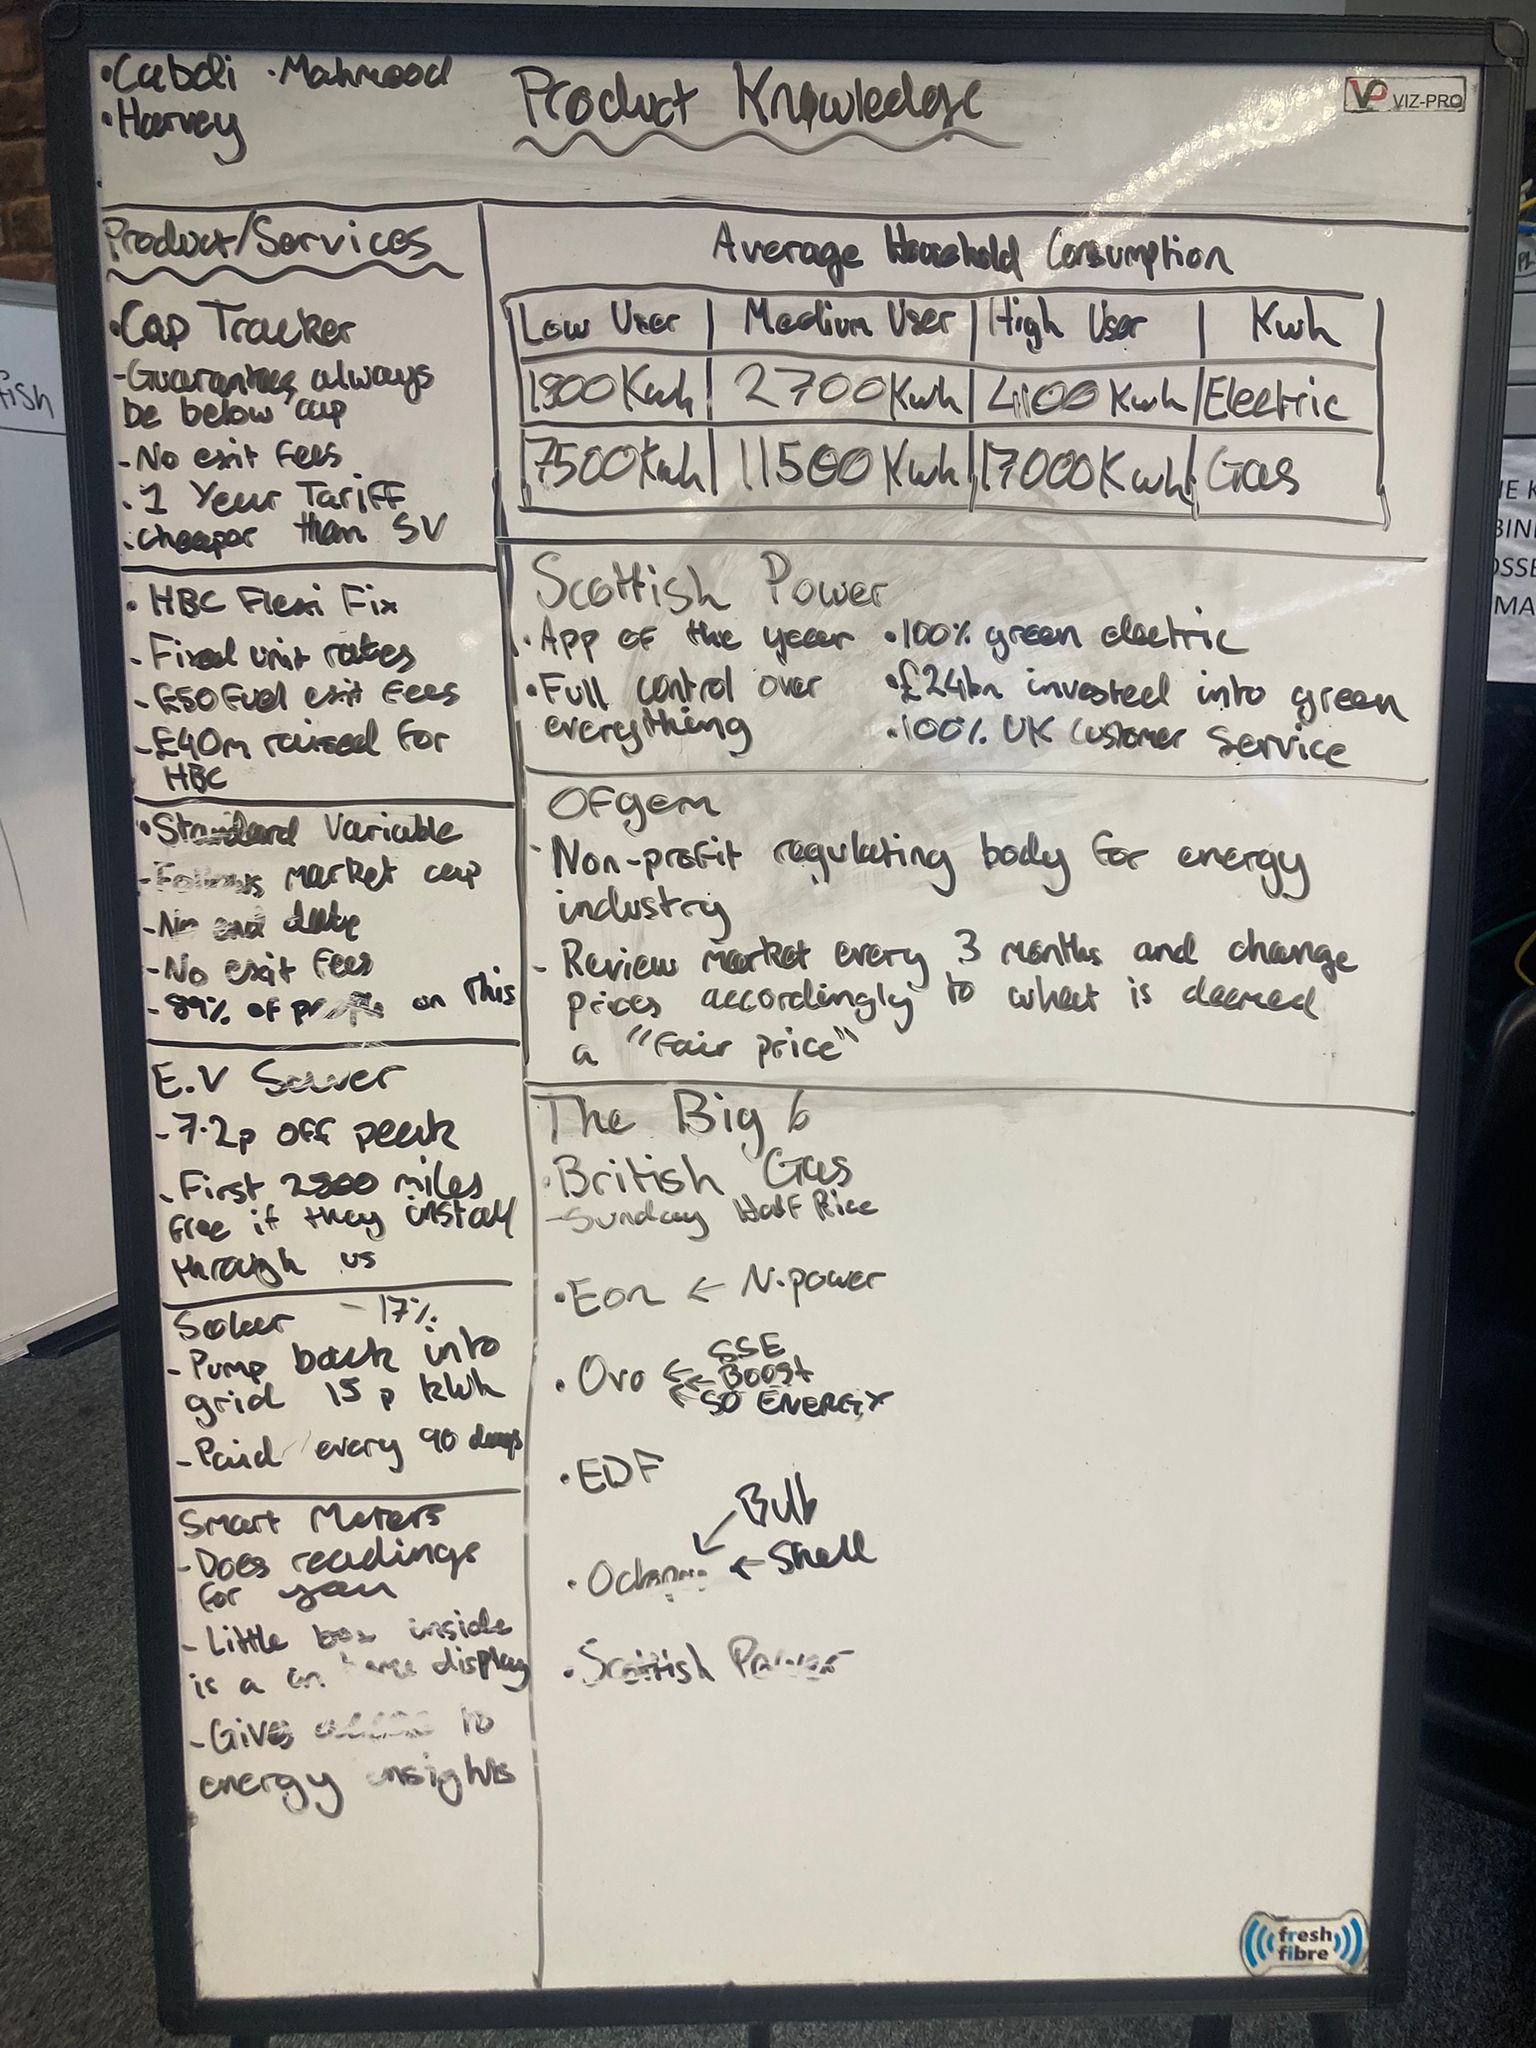 •Cabdi •Mahmood
•Harvey
Product Knowledge
VP VIZ-PRO
Product/Services
•Cap Tracker
-Guarantees always
be below cap
-No exit fees
•1 Year Tariff
•cheaper than SV
•HBC Flexi Fix
-Fixed unit rates
-£50 Fuel exit Fees
-£40m raised for
HBC
•Standard Variable
-Follows market cap
-No end date
-No exit Fees
-89% of on this
E.V Saver
-7.2p off peak
-First 2800 miles
free if they install
through us
Solar -17%
-Pump back into
grid 15 p kWh
-Paid every 90 days
Smart Meters
-Does readings
for you
-Little box inside
is a in home display
-Gives access to
energy insights
Average Household Consumption
Low User | Medium User | High User | Kwh
1800Kwh | 2700Kwh | 4100Kwh | Electric
7500Kwh | 11500Kwh | 17000Kwh | Gas
Scottish Power
•App of the year •100% green electric
•Full control over •£24bn invested into green
everything •100% UK Customer Service
OFgem
-Non-profit regulating body for energy
industry
-Review market every 3 months and change
prices accordingly to what is deemed
a "Fair price"
The Big 6
•British Gas
-Sunday Half Price
•Eon ← N.power
SSE
•Ovo ← Boost
SO ENERGY
•EDF
Bulb
← Shell
•Scottish Power
fresh
fibre
fish